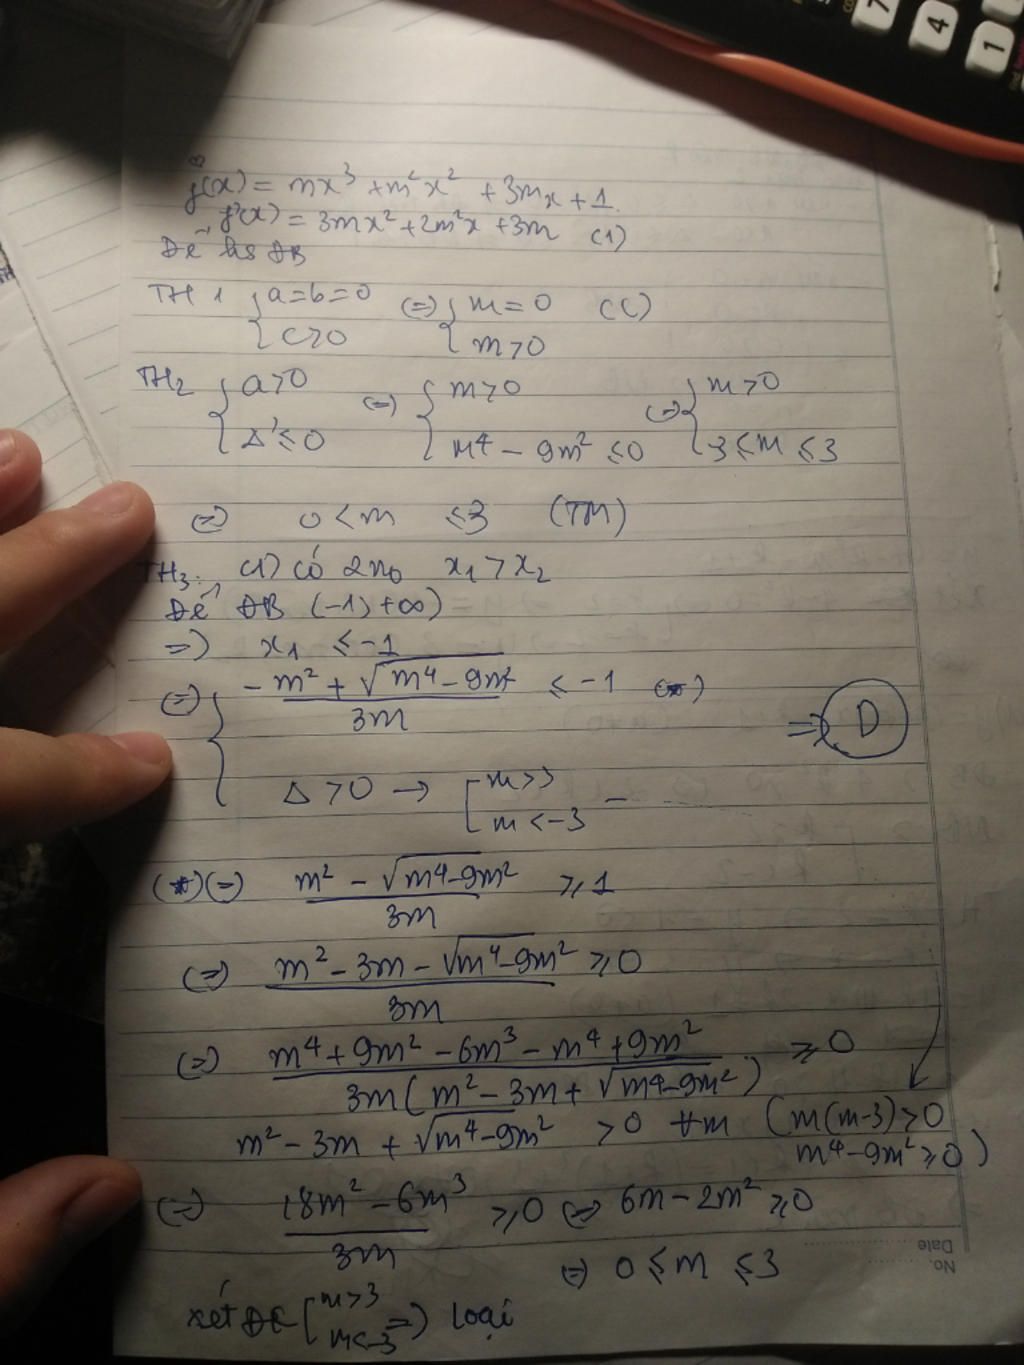 f(x) = mx³ + m²x² + 3mx + 1.
f'(x) = 3mx² + 2m²x + 3m (1)
Để hs ĐB
TH 1 { a=b=0 (=) { m = 0 (L)
c>0 m>0
TH2 { a>0 (=) { m>0 (=) { m>0
Δ' ≤ 0 m⁴ - 9m² ≤ 0 -3 ≤ m ≤ 3
(=) 0 < m ≤ 3 (TM)
TH3: (1) có 2 n₀ x₁ > x₂
Để ĐB (-1; +∞)
=) x₁ ≤ -1
(=) { (-m² + √(m⁴ - 9m²)) / 3m ≤ -1 (*)
=> D
Δ > 0 → [ m>3
m < -3
(*) (=) (m² - √(m⁴-9m²)) / 3m ≥ 1
(=) (m² - 3m - √(m⁴-9m²)) / 3m ≥ 0
(=) (m⁴ + 9m² - 6m³ - m⁴ + 9m²) / 3m(m² - 3m + √(m⁴-9m²)) ≥ 0
m² - 3m + √(m⁴-9m²) > 0 ∀m (m(m-3) > 0
m⁴-9m² ≥ 0)
(=) (18m² - 6m³) / 3m ≥ 0 (=) 6m - 2m² ≥ 0
(=) 0 ≤ m ≤ 3
xét ĐK [ m>3 =) loại
m<-3
No.
Date
7
4
1